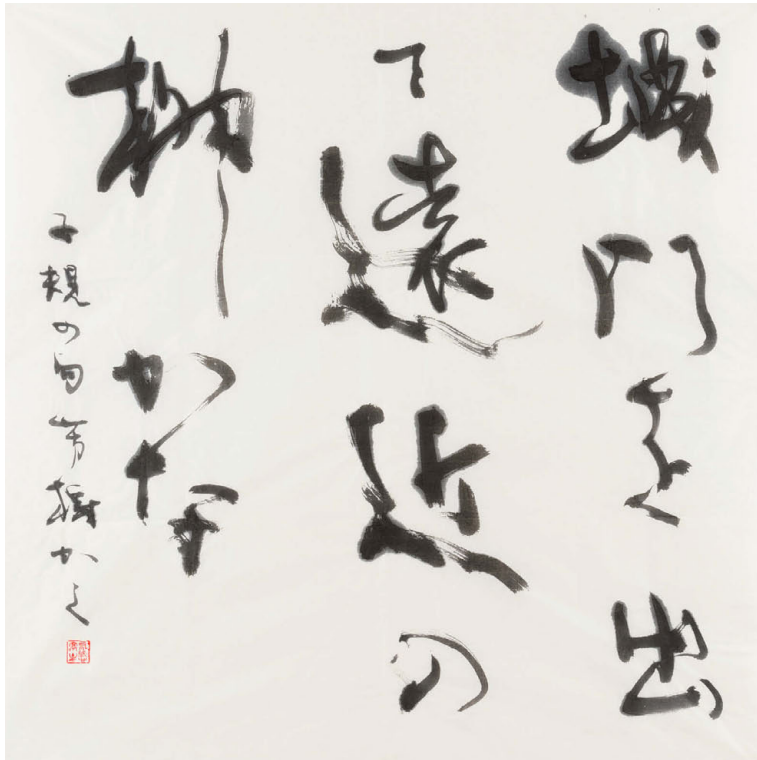 城門を出
て遠近の
柳かな
子規の句 芳樹かく